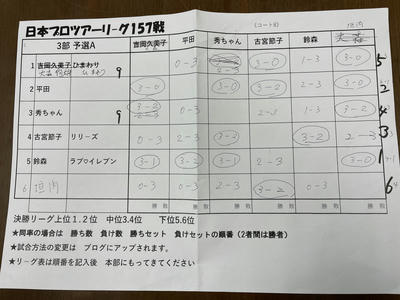 日本プロツアーリーグ157戦
3部 予選A
(コート8)
吉岡久美子 平田 秀ちゃん 古宮節子 鈴森
1 吉岡久美子 ひまわり 9 0-3 3-0 1-3 3-0 5
2 平田 3-0 2
3 秀ちゃん 9 3-2 0-3 2-3 1-3 3-0
4 古宮節子 リリーズ 0-3 2-3 3-2 3-2 2-3 3
5 鈴森 ラブ♡イレブン 3-1 3-2 3-1 2-3 3-0 1
6 垣内 0-3 0-3 2-3 3-2 0-3 6
勝 敗 勝 敗 勝 敗 勝 敗 勝 敗 勝 敗
決勝リーグ上位1.2位 中位3.4位 下位5.6位
★同率の場合は 勝ち数 負け数 勝ちセット 負けセットの順番(2者間は勝者)
★試合方法の変更は ブログにアップされます。
★リーグ表は順番を記入後 本部にもってきてください